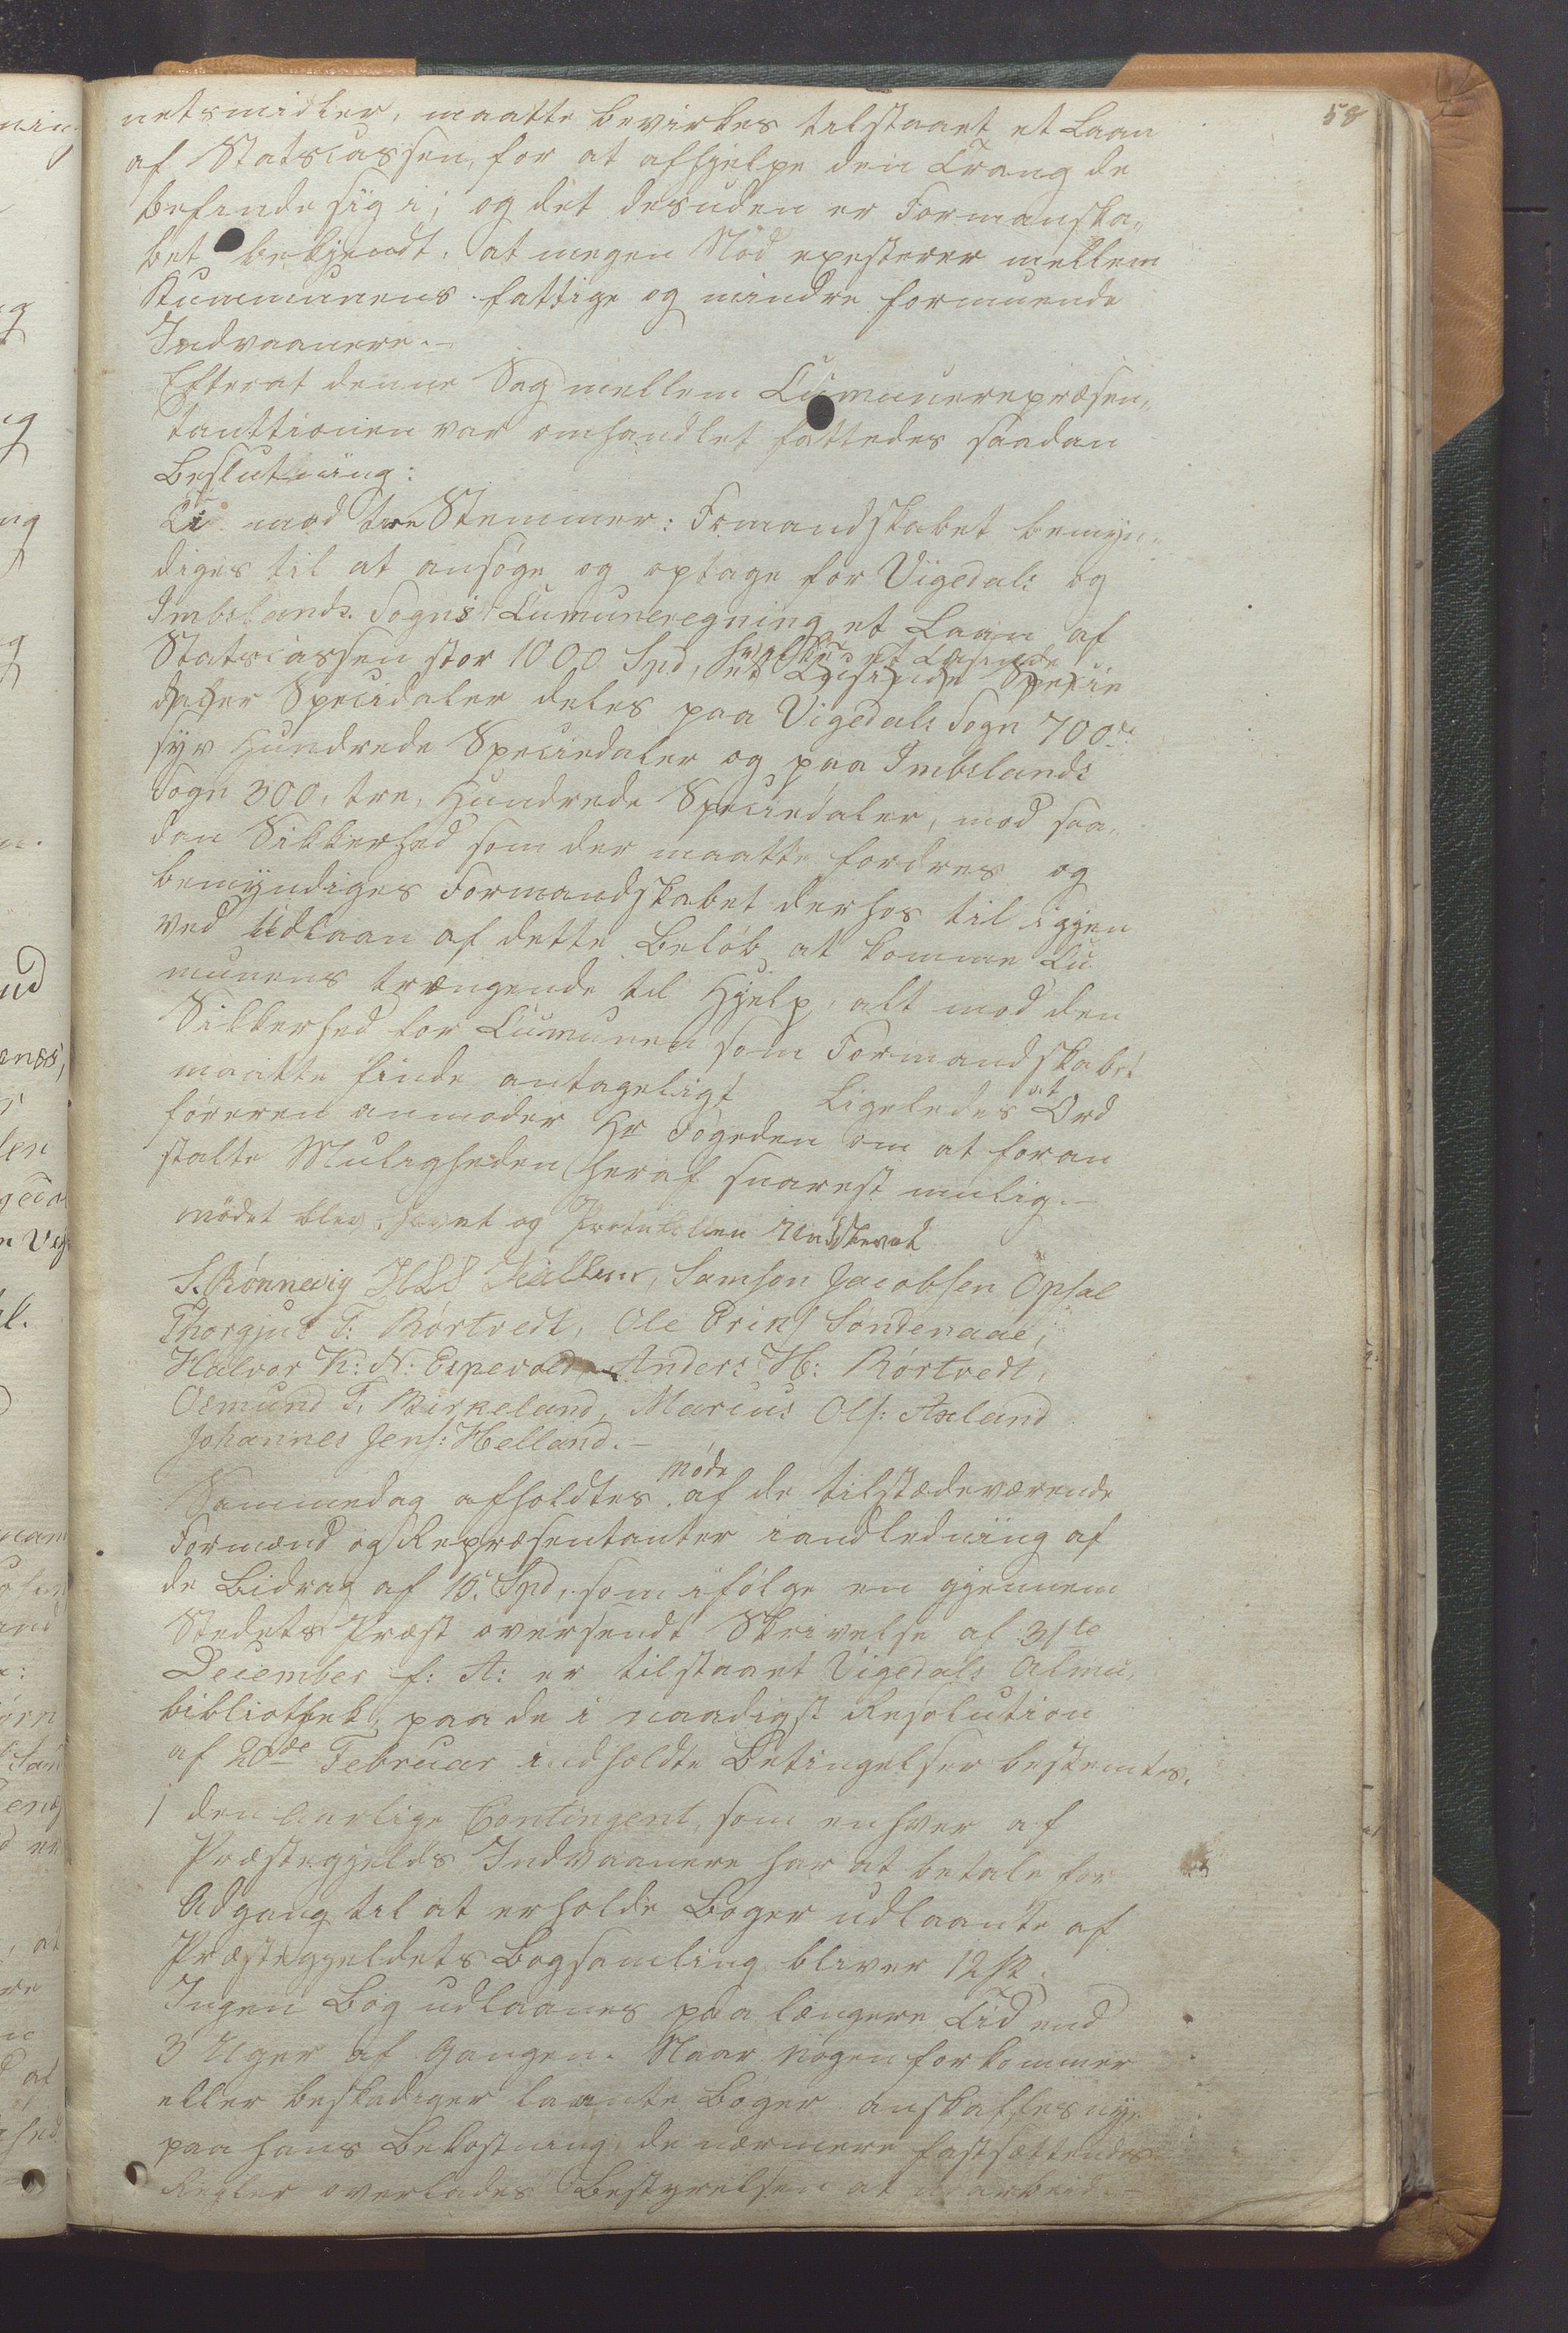 58
netsmidler, maatte bevirkes tilstaaet et Laan
af Statscassen, for at afhjelpe den Trang de
befinde sig i; og det desuden er Formanska„
bet bekjendt. at megen Nöd exesterer mellem
Kummunens fattige og mindre formuende
Indvaanere.—
Efterat denne Sag mellem Cumunerepræsen„
tanttionen var omhandlet fattedes saadan
Beslutning:
Ti mod tre Stemmer: Fomandskabet bemyn„
diges til at ansöge og optage for Vigedals og
Imbslands Sogns Cumuneregning et Laan af
Statscassen stor 1000 Spd, hvilke et Tusinde
daler Specidaler deles paa Vigedals Sogn 700
syv Hundrede Speciedaler og paa Imbslands
Sogn 300, tre, Hundrede Speciedaler, mod saa„
dan Sikkerhed som der maatte fordres og
bemyndiges Formandskabet derhos til igjen
ved Udlaan af dette Belöb at komme Cu
munens trængende til Hjelp, alt mod den
Sikkerhed for Cumunen som Formandskabet
maatte finde antageligt Ligeledes at Ord
föreren anmoder Hr Fogeden om at foran
stalte Muligheden heraf snarest mulig.—
mödet blev hevet og Protukollen
S. Rönnevig Samson Jacobsen Opsal
Thorgjus T: Rörtvedt, Ole Erins Söndenaae,
Halvor K: N: Espevold, Anders H: Rörtvedt,
Osmund T. Birkeland, Marcus Ols: Axland
Johannes Jens: Helland.—
Sammedag afholdtes möde af de tilstædeværende
Formænd og Repræsentanter iandledning af
de Bidrag af 15. Spd, som ifölge en gjennem
Stedets Præst oversendt Skrivelse af 31te
December f: A: er tilstaaet Vigedals Almu„
bibliothek, paa de i naadigst Resolution
af 20de Februar indholdte Betingelser bestemtes,
1 den Aarlige Contingent, som enhver af
Præstegjelds Indvaanere har at betale for
Adgang til at erholde Böger udlaante af
Præstegjeldets Bogsamling bliver 12 sk.
Ingen Bog udlaanes paa længere Tid end
3 Uger af Gangen. Naar nogen forkommer
eller beskadiger laante Böger anskaffes nye
paa hans Bekostning, de nærmere fastsættendes
Regler overlades Bestyrelsen at udarbeid.—